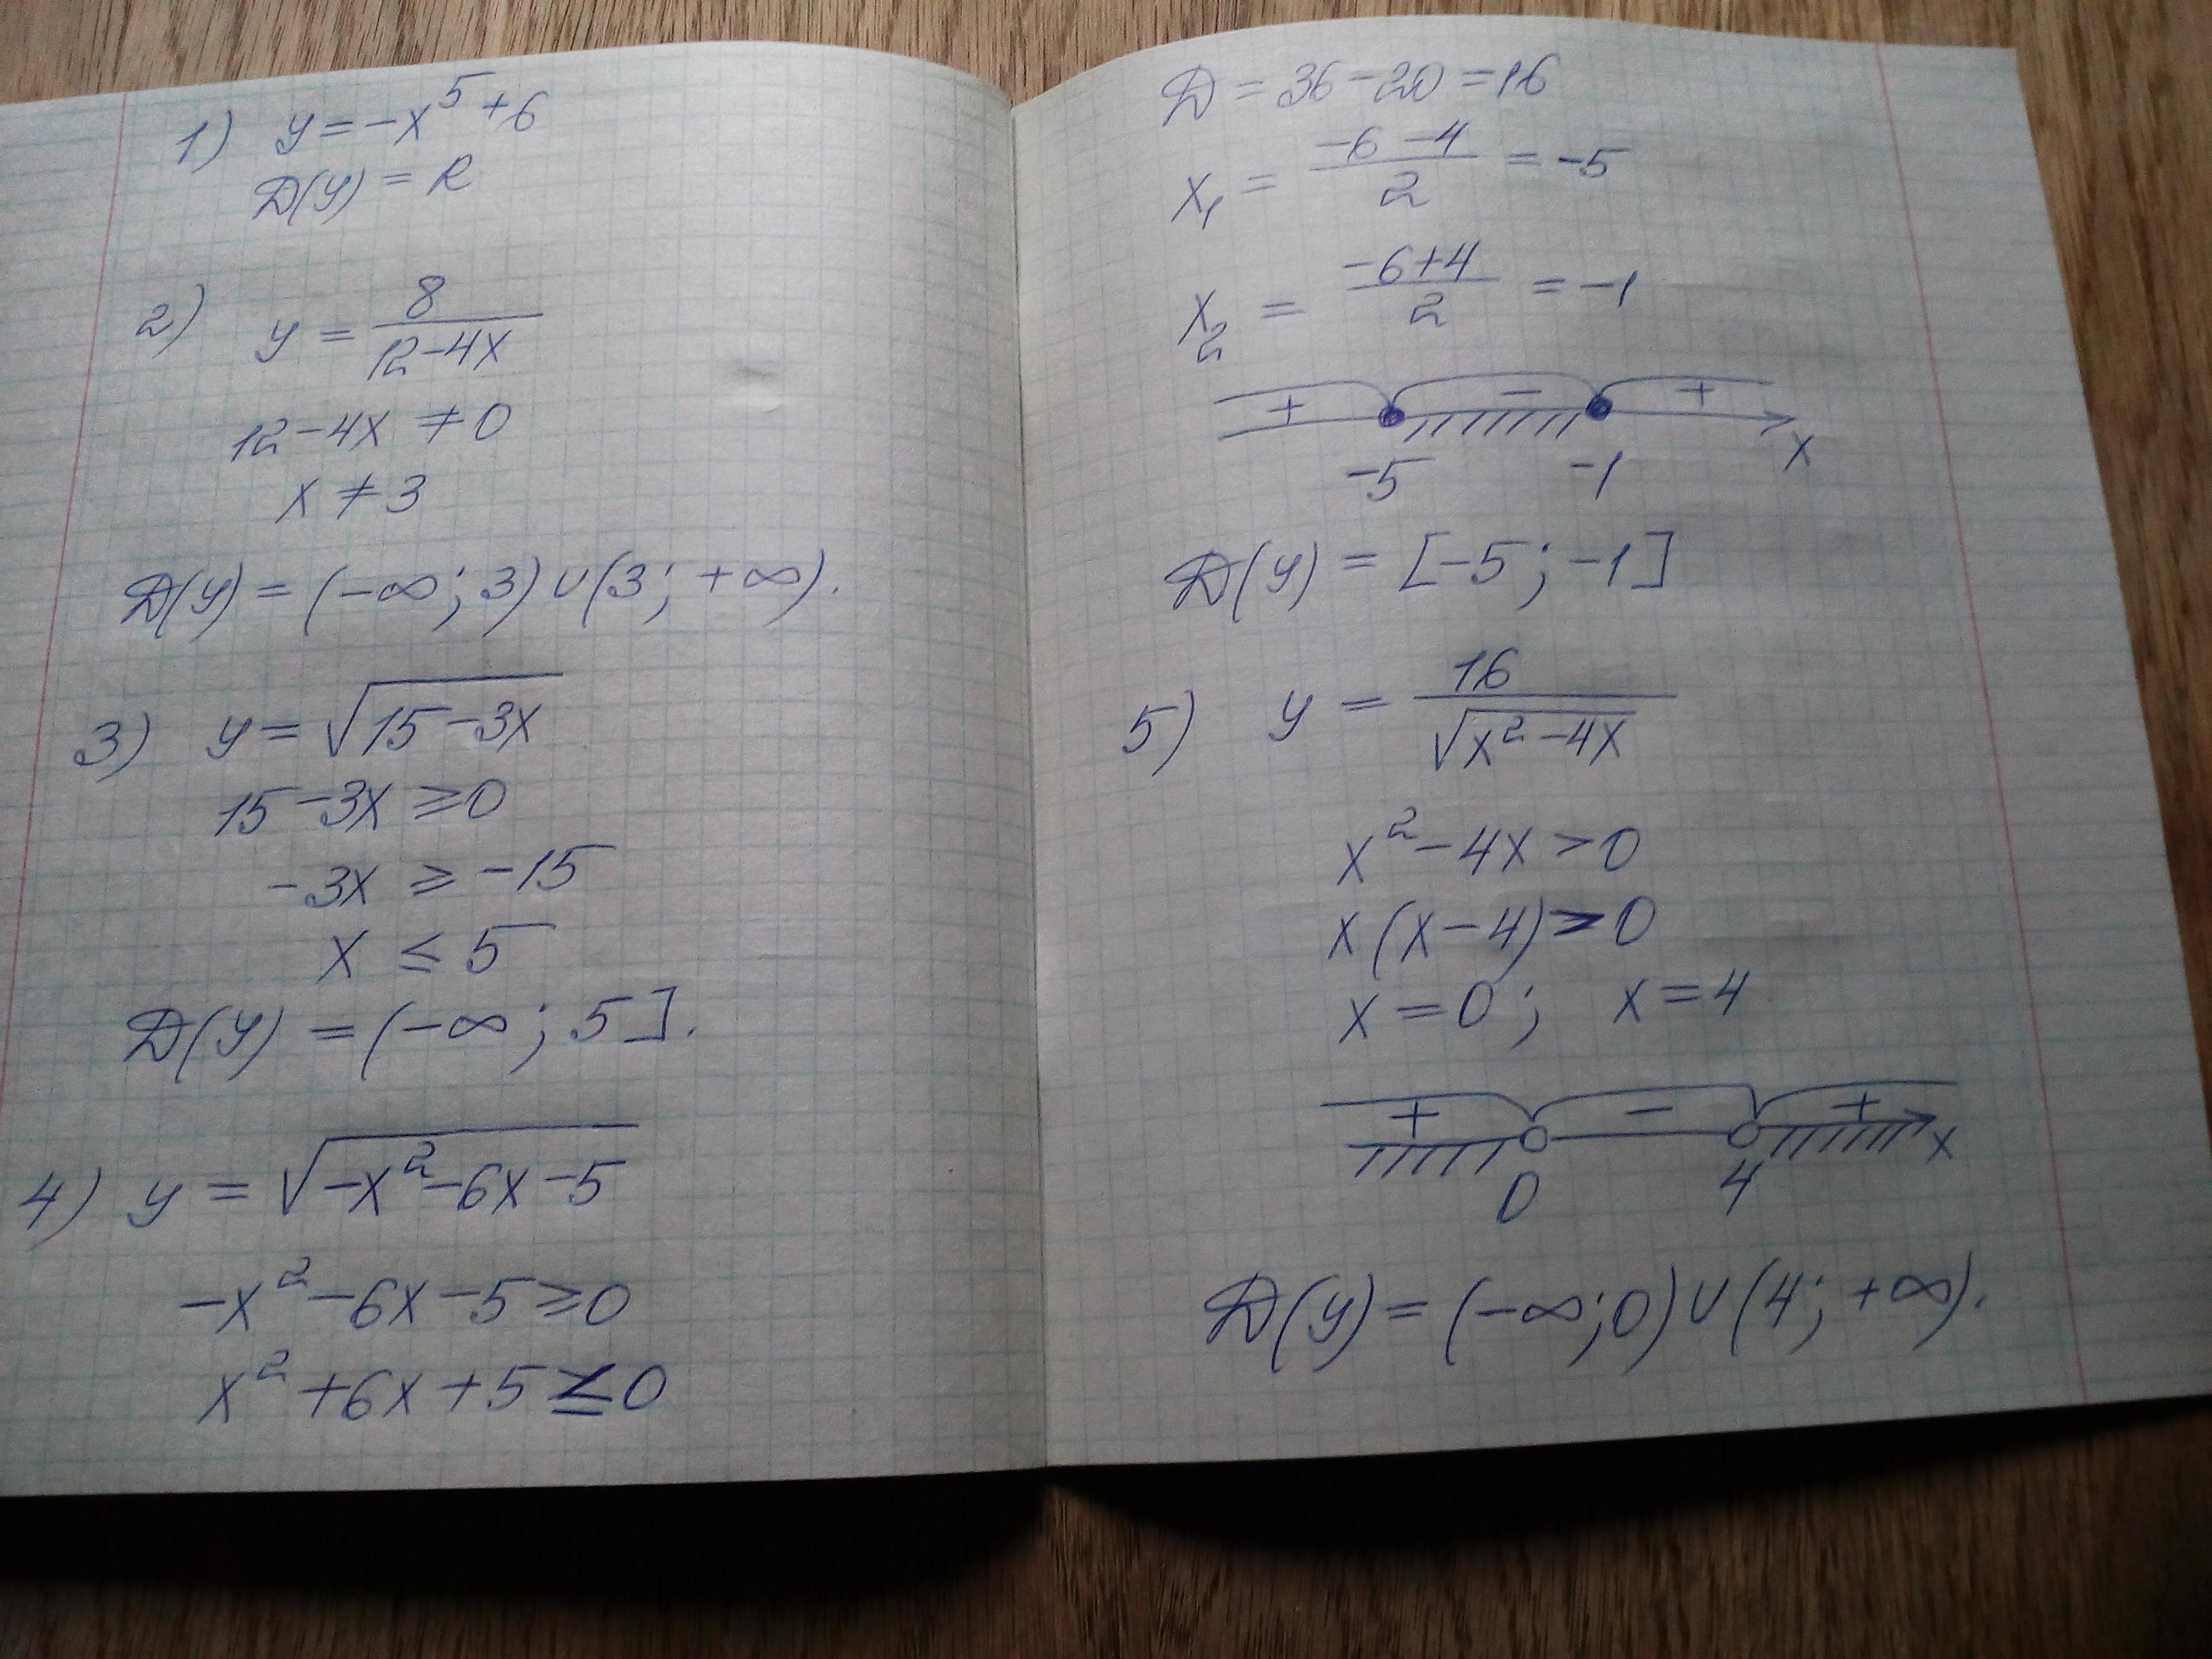 1) y = -x⁵ + 6
D(y) = R
2) y = 8/(12-4x)
12-4x ≠ 0
x ≠ 3
D(y) = (-∞; 3) ∪ (3; +∞).
3) y = √(15-3x)
15-3x ≥ 0
-3x ≥ -15
x ≤ 5
D(y) = (-∞; 5].
4) y = √(-x²-6x-5)
-x²-6x-5 ≥ 0
x²+6x+5 ≤ 0
D = 36-20 = 16
x₁ = (-6-4)/2 = -5
x₂ = (-6+4)/2 = -1
+ - +
-5 -1 x
D(y) = [-5; -1]
5) y = 16/√(x²-4x)
x²-4x > 0
x(x-4) > 0
x = 0; x = 4
+ - +
0 4 x
D(y) = (-∞; 0) ∪ (4; +∞).